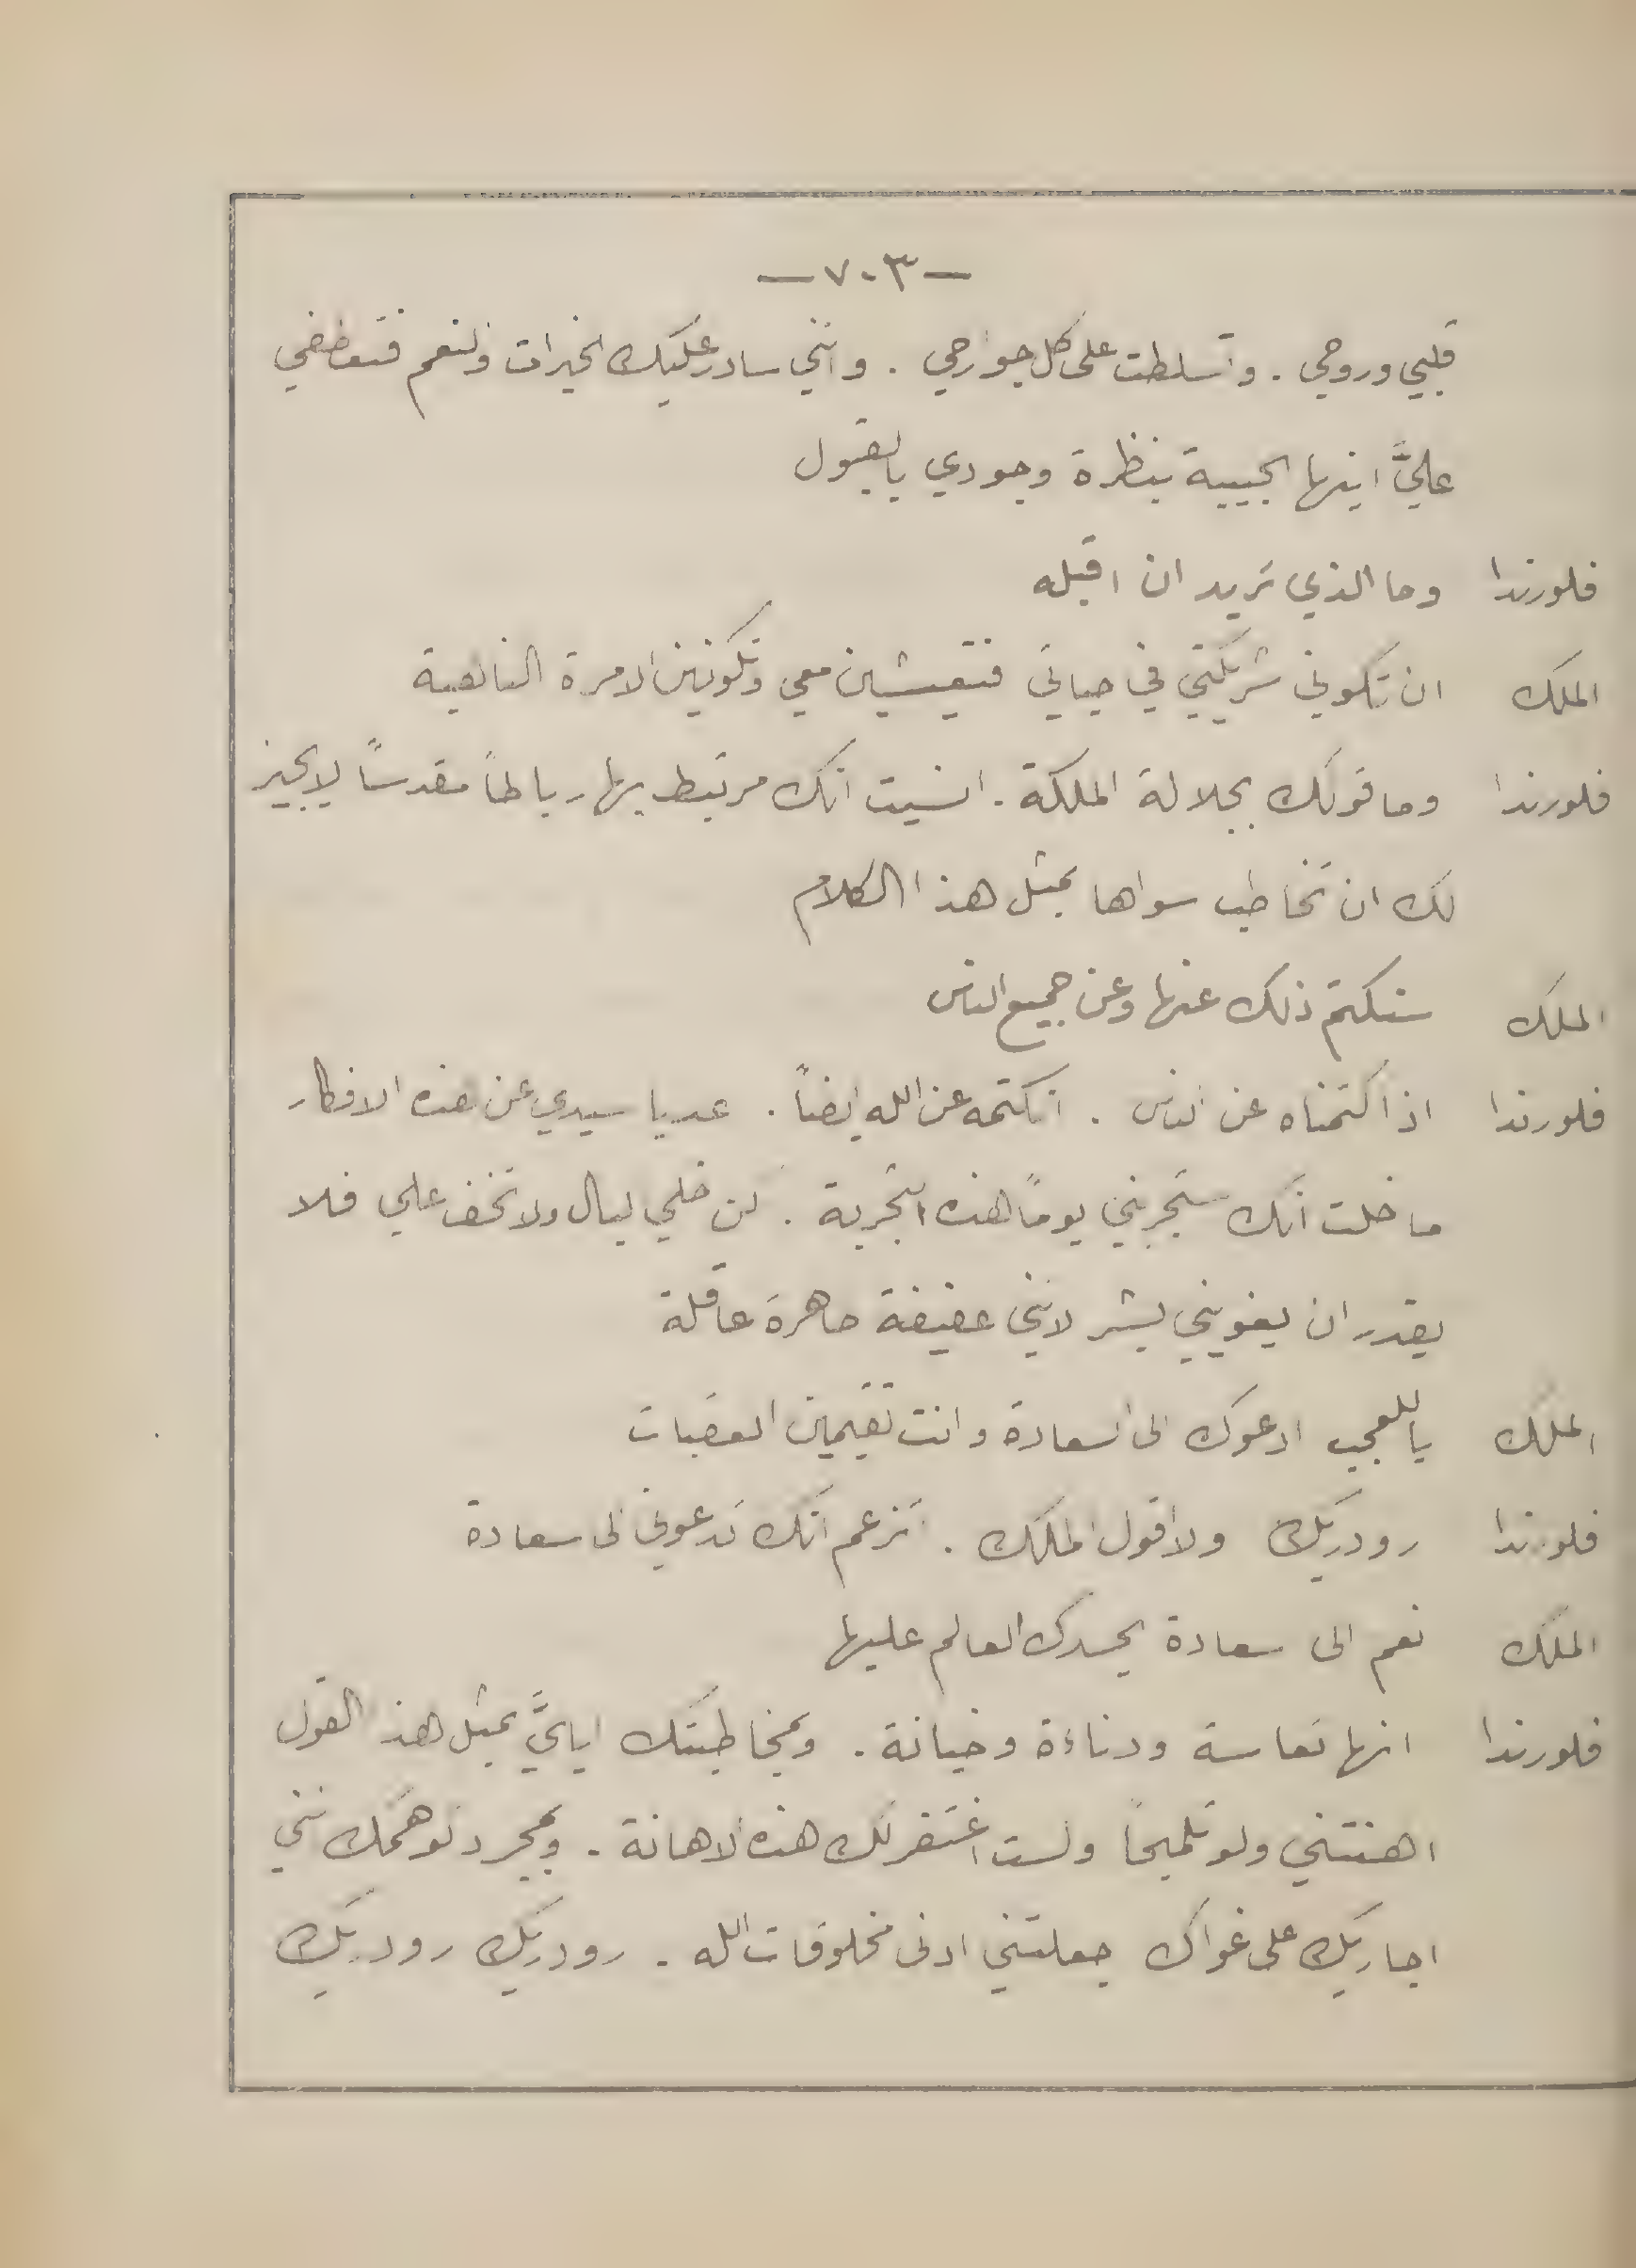 — ٧٠٣ —
قلبي وروحي . وتسلطت على كل جوارحي . وانني سادر عليك الخيرات والنعم فتعطفي
عليَّ ايتها الحبيبة بنظرة وجودي بالقبول
فلورندا وما الذي تريد ان اقبله
الملك ان تكوني شريكتي في حياتي فتعيشين معي وتكونين الامرة الناهية
فلورندا وما قولك بجلالة الملكة . انسيت انك مرتبط بها رباطاً مقدساً لا يجيز
لك ان تخاطب سواها بمثل هذا الكلام
الملك سنكتم ذلك عنها وعن جميع الناس
فلورندا اذا كتمناه عن الناس . انكتمه عن الله ايضاً . عد يا سيدي عن هذه الافكار
ما خلت انك ستجربني يوماً هذه التجربة . كن خلي البال ولا تخف علي فلا
يقدر ان يغويني بشر لانني عفيفة طاهرة عاقلة
الملك يا للعجب ادعوك الى السعادة وانت تقيمين العقبات
فلورندا رودريك ولا اقول الملك . تزعم انك تدعوني الى سعادة
الملك نعم الى سعادة يحسدك العالم عليها
فلورندا انها تعاسة ودناءة وخيانة . وبمخاطبتك اياي بمثل هذا القول
اهنتني ولو تلميحاً ولست اغتفر لك هذه الاهانة . وبمجرد توهمك انني
اجاريك على غواك جعلتني ادنى مخلوقات الله . رودريك رودريك